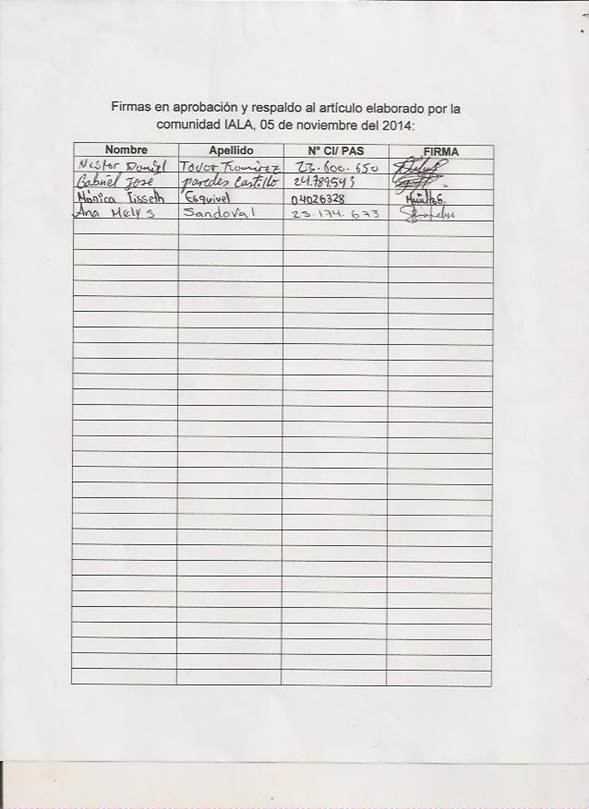 Firmas en aprobación y respaldo al artículo elaborado por la
comunidad IALA, 05 de noviembre del 2014:
Nombre Apellido N° CI/ PAS FIRMA
Nestor Daniel Tovar Ramirez 23.600.650
Gabriel José paredes Castillo 24.789.543
Mónica Lisseth Esquivel 04026328
Ana Melys Sandoval 25.174.673